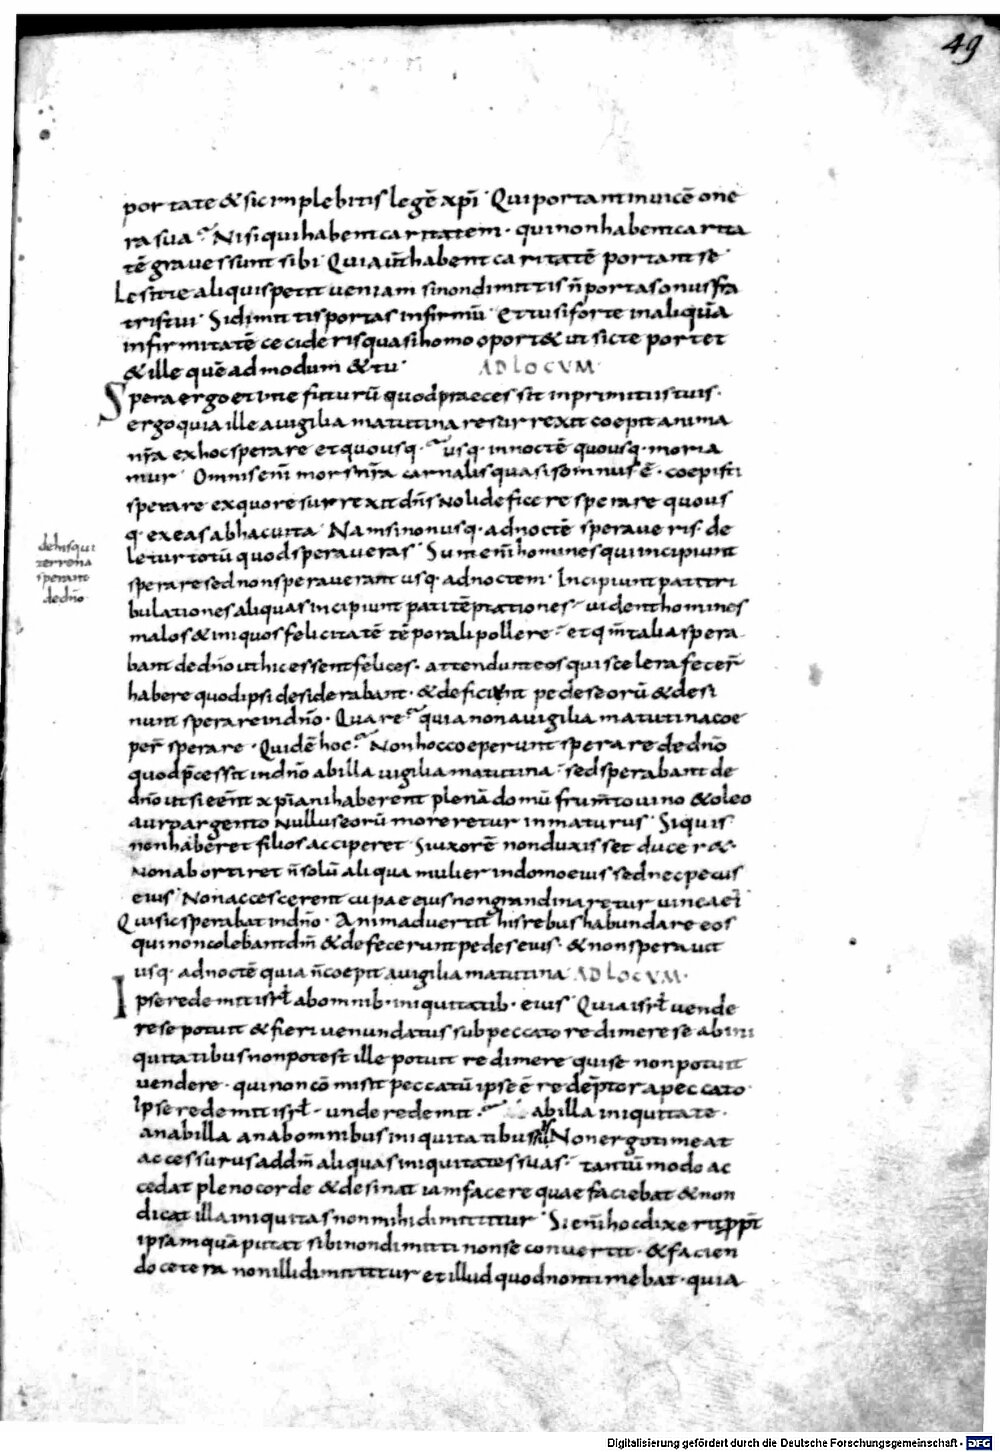 49
portate & sic implebitis legē xp̄i· Qui portant inuicē one
ra sua? Nisi qui habent caritatem· qui non habent carita
tē graues sunt sibi· Quia ū habent caritatē portant se
Lesit te aliquis petit ueniam si non dimittis n̄ portas onus fra
tris tui· Si dimittis portas infirmū· Et tu si forte in aliquā
infirmitatē cecideris quasi homo oport& ut sic te portet
& ille quē ad modum & tu· AD LOCVM·
Spera ergo et tu ne futurū quod praecessit in primitiis tuis·
ergo quia ille a uigilia matutina resurrexit coepit anima
nr̄a ex hoc sperare et quo usq·? usq· in noctē quousq· moria
mur· Omnis eni mors nr̄a carnalis quasi somnus ē· coepisti
sperare ex quo resurrexit dn̄s noli deficere sperare quous
q· exeas ab hac uita· Nam si non usq· ad noctē speraueris· de
letur totū quod speraueras· Sunt eni homines qui incipiunt
sperare sed non sperauerant usq· ad noctem· Incipiunt pati tri
bulationes aliquas incipiunt pati tēptationes· uident homines
malos & iniquos felicitatē tēporali pollere· et q̄m talia spera
bant de dn̄o ut hic essent felices· attendunt eos qui scelera fecer̄
habere quod ipsi desiderabant· & deficiunt pedes eorū & desi
nunt sperare in dn̄o· Quare? quia non a uigilia matutina coe
per̄ sperare· Quid ē hoc? Non hoc coeperunt sperare de dn̄o
quod p̄cessit in dn̄o ab illa uigilia matutina· sed sperabant de
dn̄o ut si eēnt xp̄iani haberent plenā domū frum̄to uino & oleo
auro argento nullus eorū moreretur inmaturus· Si quis
non haberet filios acciperet Si uxorē non duxisset ducer&·
Non abortiret n̄ solū aliqua mulier in domo eius sed nec pecus
eius· Non accescerent cupae eius non grandinaretur uinea ei
Qui sic sperabat in dn̄o· Animaduertit his rebus habundare eos
qui non colebant dm̄ & defecerunt pedes eius· & non sperauit
usq· ad noctē quia n̄ coepit a uigilia matutina AD LOCVM·
Ipse redemit isrł ab omnib· iniquitatib· eius· Quia isrł uende
re se potuit & fieri uenundatus sub peccato redimere se ab ini
quitatibus non potest ille potuit redimere qui se non potuit
uendere· qui non cōmisit peccatū ipse ē redēptor a peccato·
Ipse redemit isrł· unde redemit? ab illa iniquitate·
an ab illa an ab omnibus iniquitatibus Non ergo timeat
accessurus ad dm̄ aliquas iniquitates suas· tantū modo ac
cedat pleno corde & desinat iam facere quae faciebat & non
dicat illa iniquitas non mihi dimittitur· Si eni hoc dixerit ppt̄
ipsam quā putat sibi non dimitti non se conuertit· & facien
do cetera non illi dimittitur et illud quod non timebat· quia
de his qui
terrena
sperant
de dn̄o
Digitalisierung gefördert durch die Deutsche Forschungsgemeinschaft - DFG